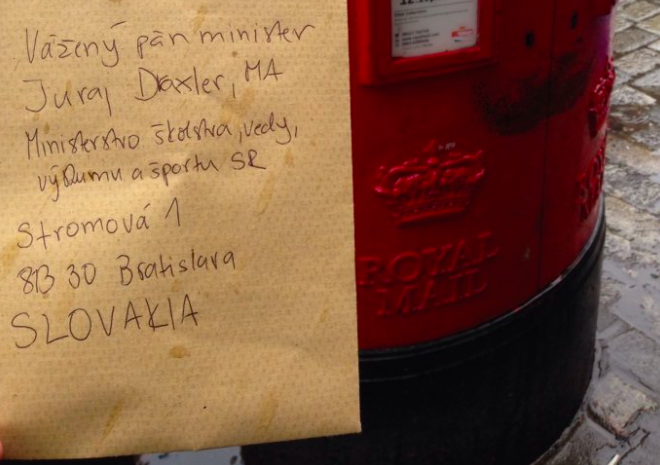 Vážený pán minister
Juraj Draxler, MA
Ministerstvo školstva, vedy,
výskumu a športu SR
Stromová 1
813 30 Bratislava
SLOVAKIA
ROYAL
MAIL